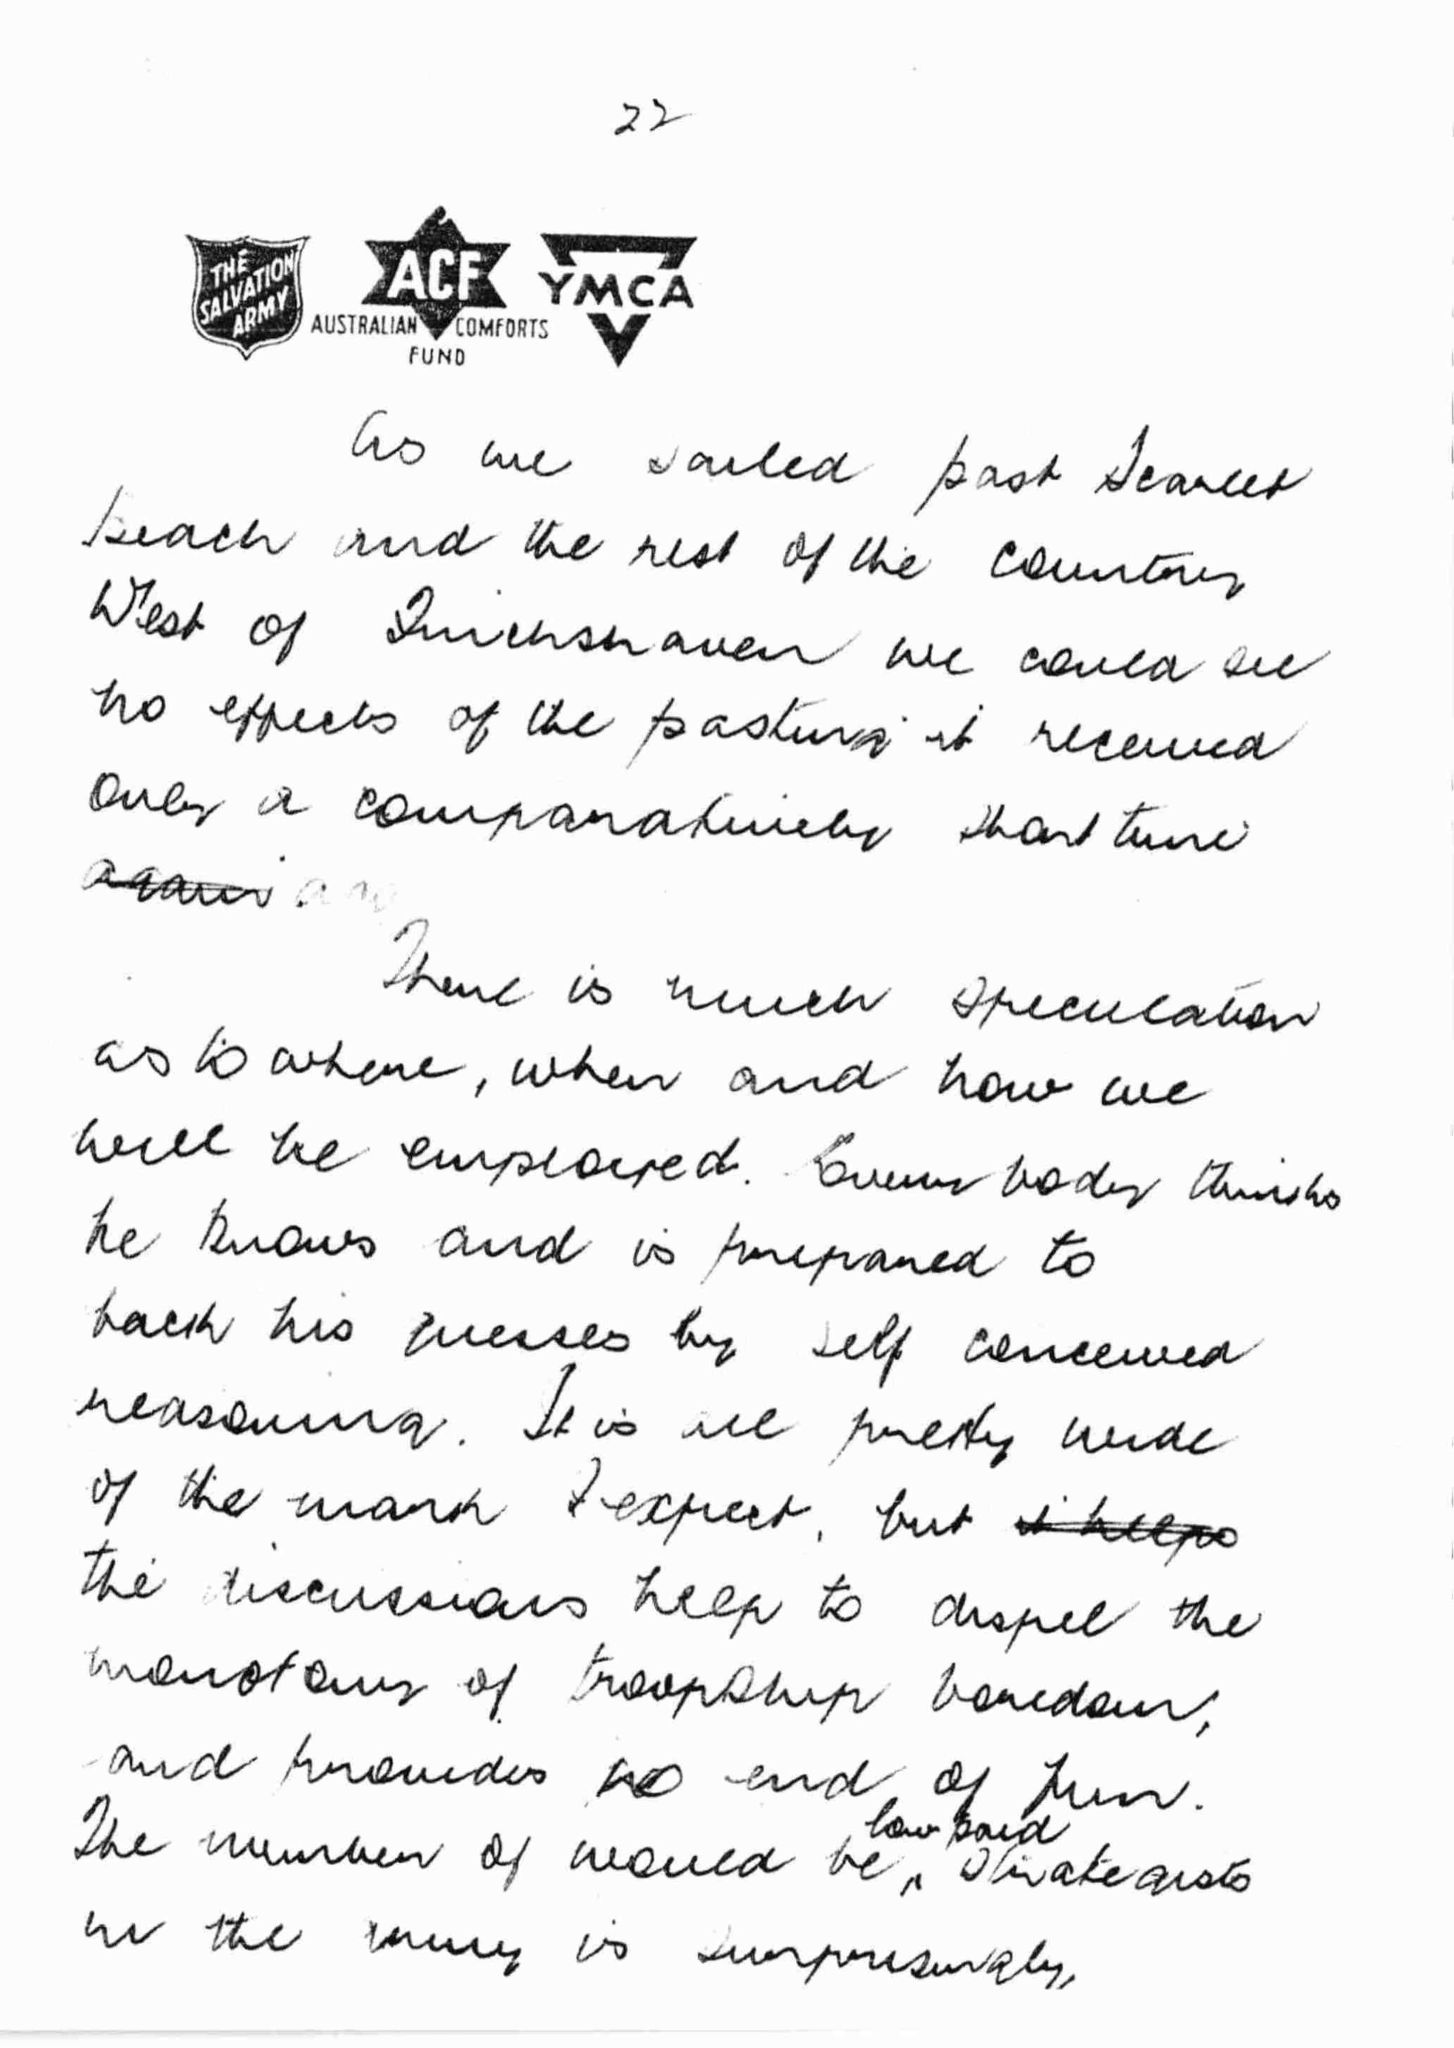 22
THE SALVATION ARMY
ACF
AUSTRALIAN COMFORTS FUND
YMCA
As we sailed past Scarlet
Beach and the rest of the country
West of Finchshaven we could see
no effects of the pasting it received
only a comparatively short time
again ago
There is much speculation
as to where, when and how we
will be employed. Everybody thinks
he knows and is prepared to
back his guesses by self conceived
reasoning. It is all pretty wide
of the mark I expect, but it helps
the discussions help to dispel the
monotony of troopship boredom,
and provides no end of fun.
The number of would be, low paid strategists
in the army is surprisingly,